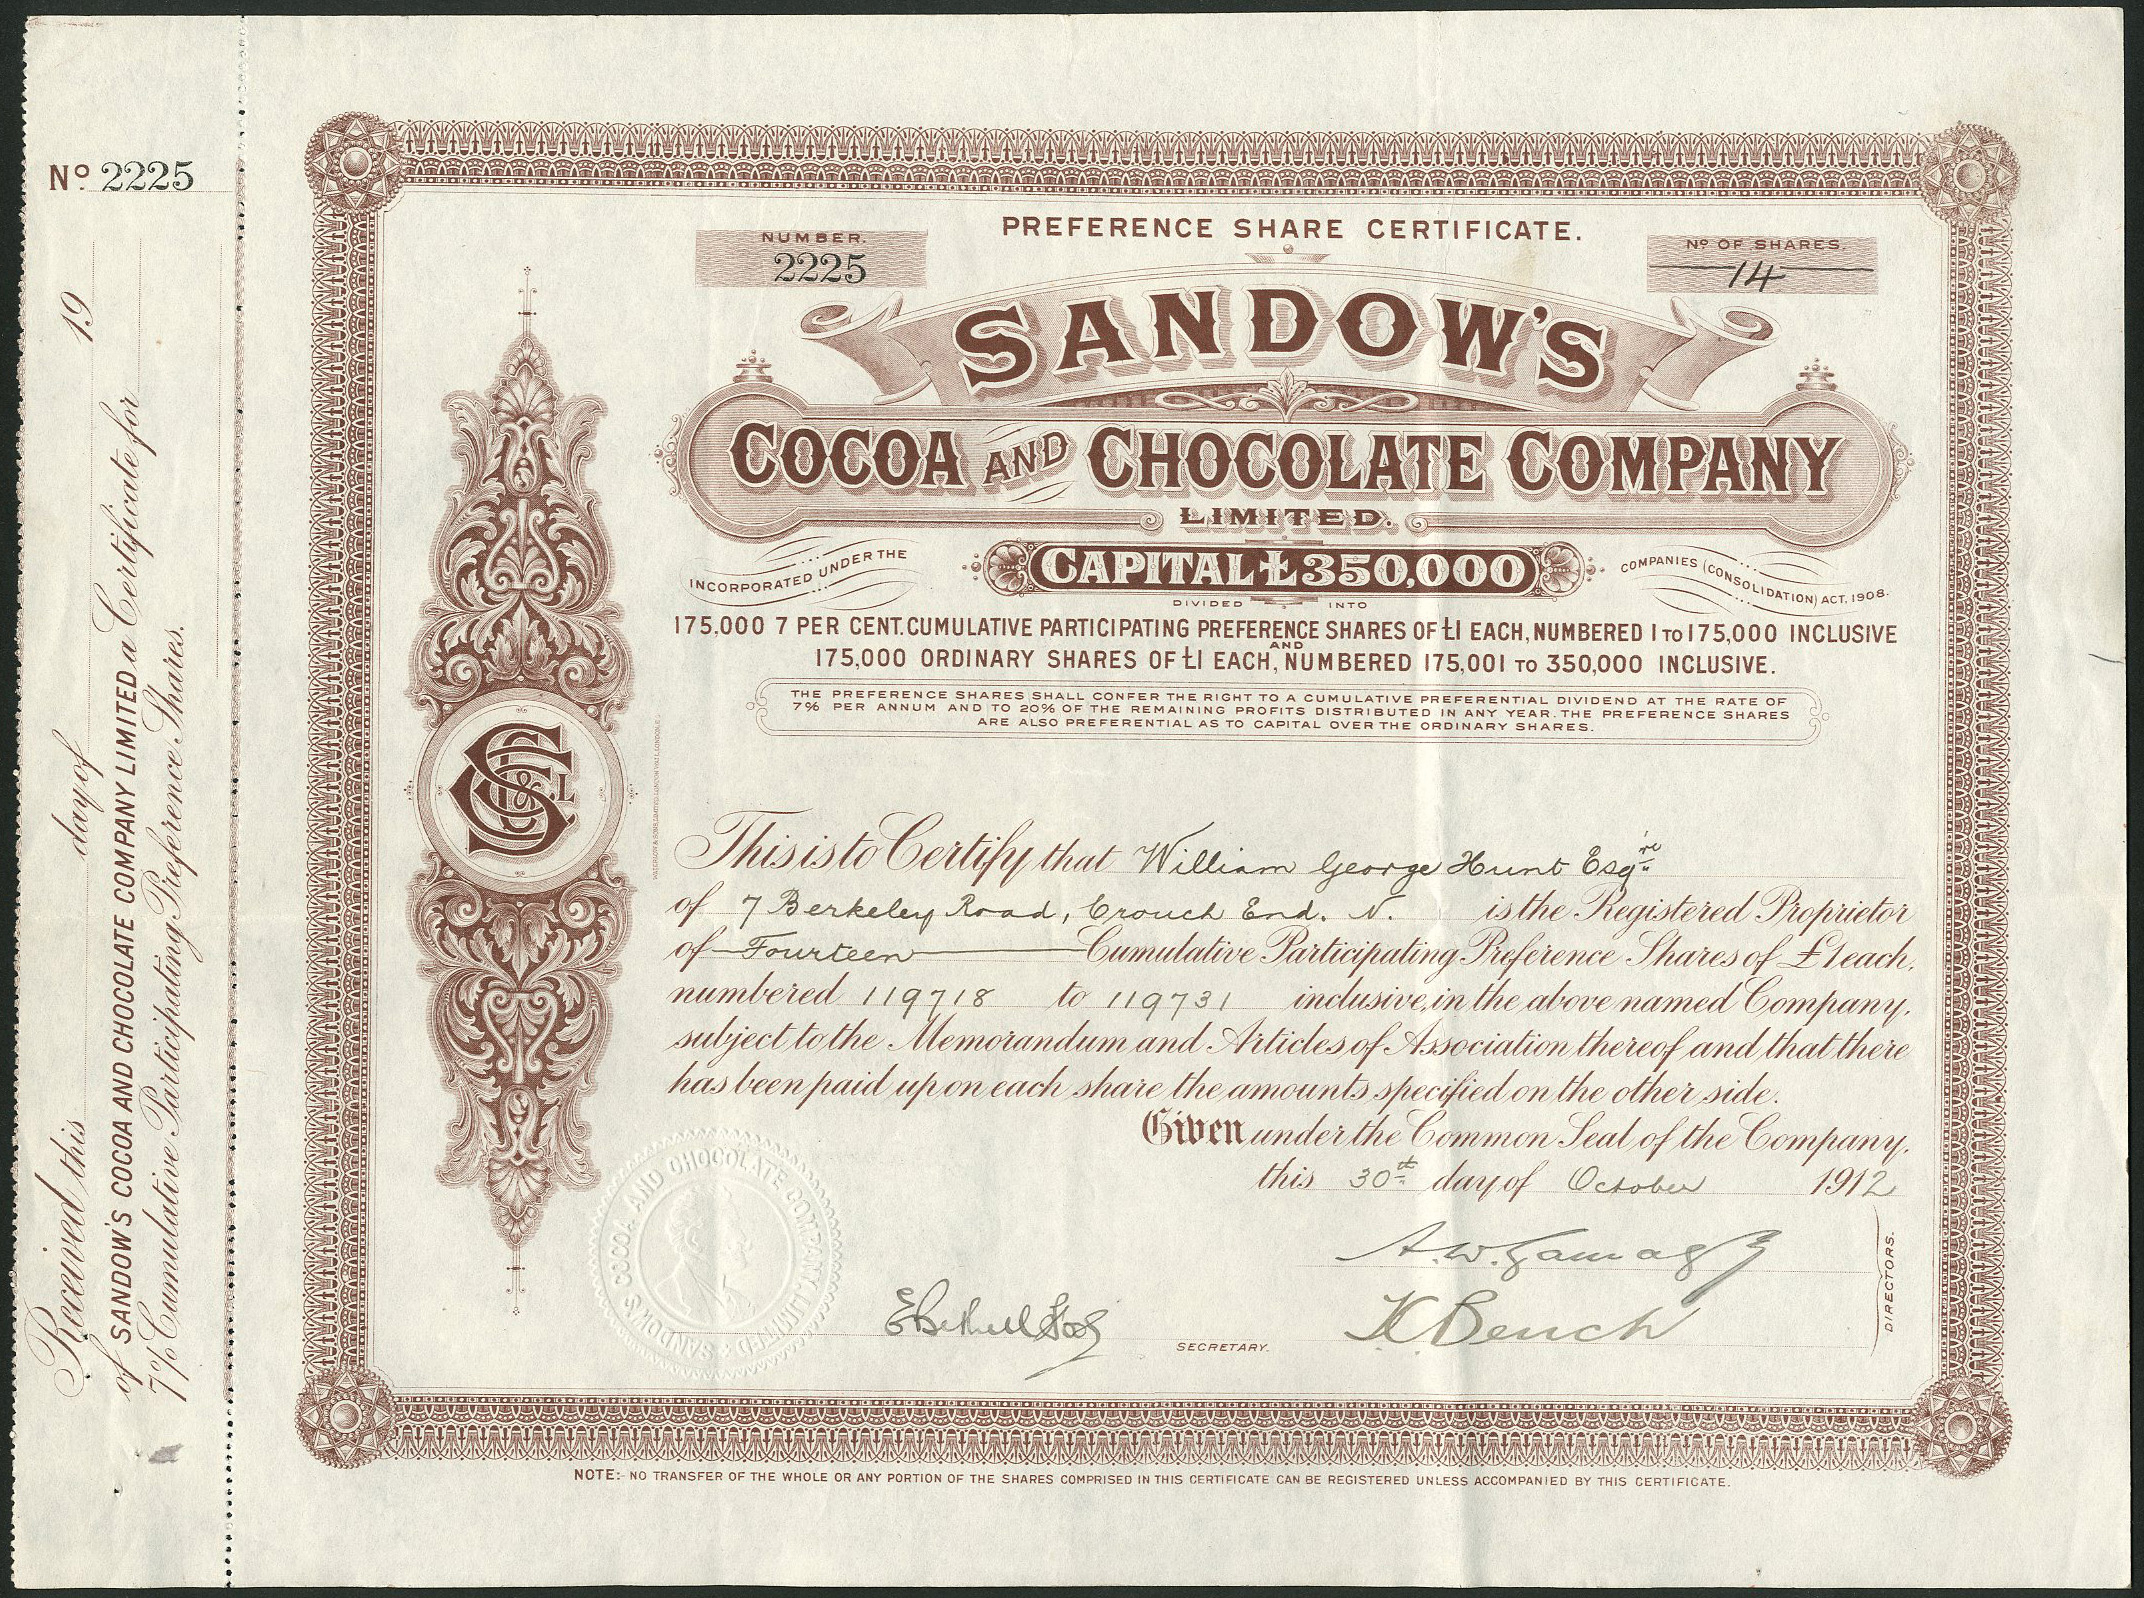 Nº 2225
19
Received this day of
of SANDOW'S COCOA AND CHOCOLATE COMPANY LIMITED a Certificate for
7% Cumulative Participating Preference Shares.
PREFERENCE SHARE CERTIFICATE.
NUMBER.
2225
Nº OF SHARES.
14
SANDOW'S
COCOA AND CHOCOLATE COMPANY
LIMITED.
INCORPORATED UNDER THE
CAPITAL £350,000
COMPANIES (CONSOLIDATION) ACT, 1908.
DIVIDED INTO
175,000 7 PER CENT. CUMULATIVE PARTICIPATING PREFERENCE SHARES OF £1 EACH, NUMBERED 1 TO 175,000 INCLUSIVE
AND
175,000 ORDINARY SHARES OF £1 EACH, NUMBERED 175,001 TO 350,000 INCLUSIVE.
THE PREFERENCE SHARES SHALL CONFER THE RIGHT TO A CUMULATIVE PREFERENTIAL DIVIDEND AT THE RATE OF
7% PER ANNUM AND TO 20% OF THE REMAINING PROFITS DISTRIBUTED IN ANY YEAR. THE PREFERENCE SHARES
ARE ALSO PREFERENTIAL AS TO CAPITAL OVER THE ORDINARY SHARES.
WATERLOW & SONS LIMITED, LONDON WALL, LONDON.
This is to Certify that William George Hunt Esqre
of 7 Berkeley Road, Crouch End. N. is the Registered Proprietor
of Fourteen Cumulative Participating Preference Shares of £1 each,
numbered 119718 to 119731 inclusive, in the above named Company,
subject to the Memorandum and Articles of Association thereof and that there
has been paid upon each share the amounts specified on the other side.
Given under the Common Seal of the Company,
this 30th day of October 1912
SANDOW'S COCOA AND CHOCOLATE COMPANY LIMITED
A. W. Gamage
K Bench
DIRECTORS.
SECRETARY.
NOTE:- NO TRANSFER OF THE WHOLE OR ANY PORTION OF THE SHARES COMPRISED IN THIS CERTIFICATE CAN BE REGISTERED UNLESS ACCOMPANIED BY THIS CERTIFICATE.